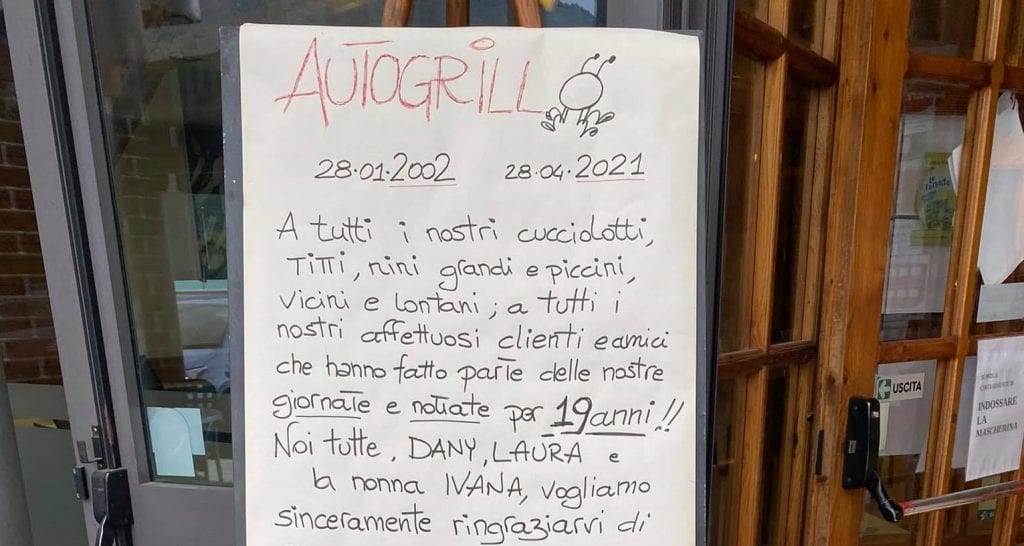 AUTOGRILL
28.01.2002 28.04.2021
A tutti i nostri cucciolotti,
TITTI, nini grandi e piccini,
vicini e lontani; a tutti i
nostri affettuosi clienti e amici
che hanno fatto parte delle nostre
giornate e nottate per 19 anni!!
Noi tutte, DANY, LAURA e
la nonna IVANA, vogliamo
sinceramente ringraziarvi di
USCITA
INDOSSARE
LA
MASCHERINA